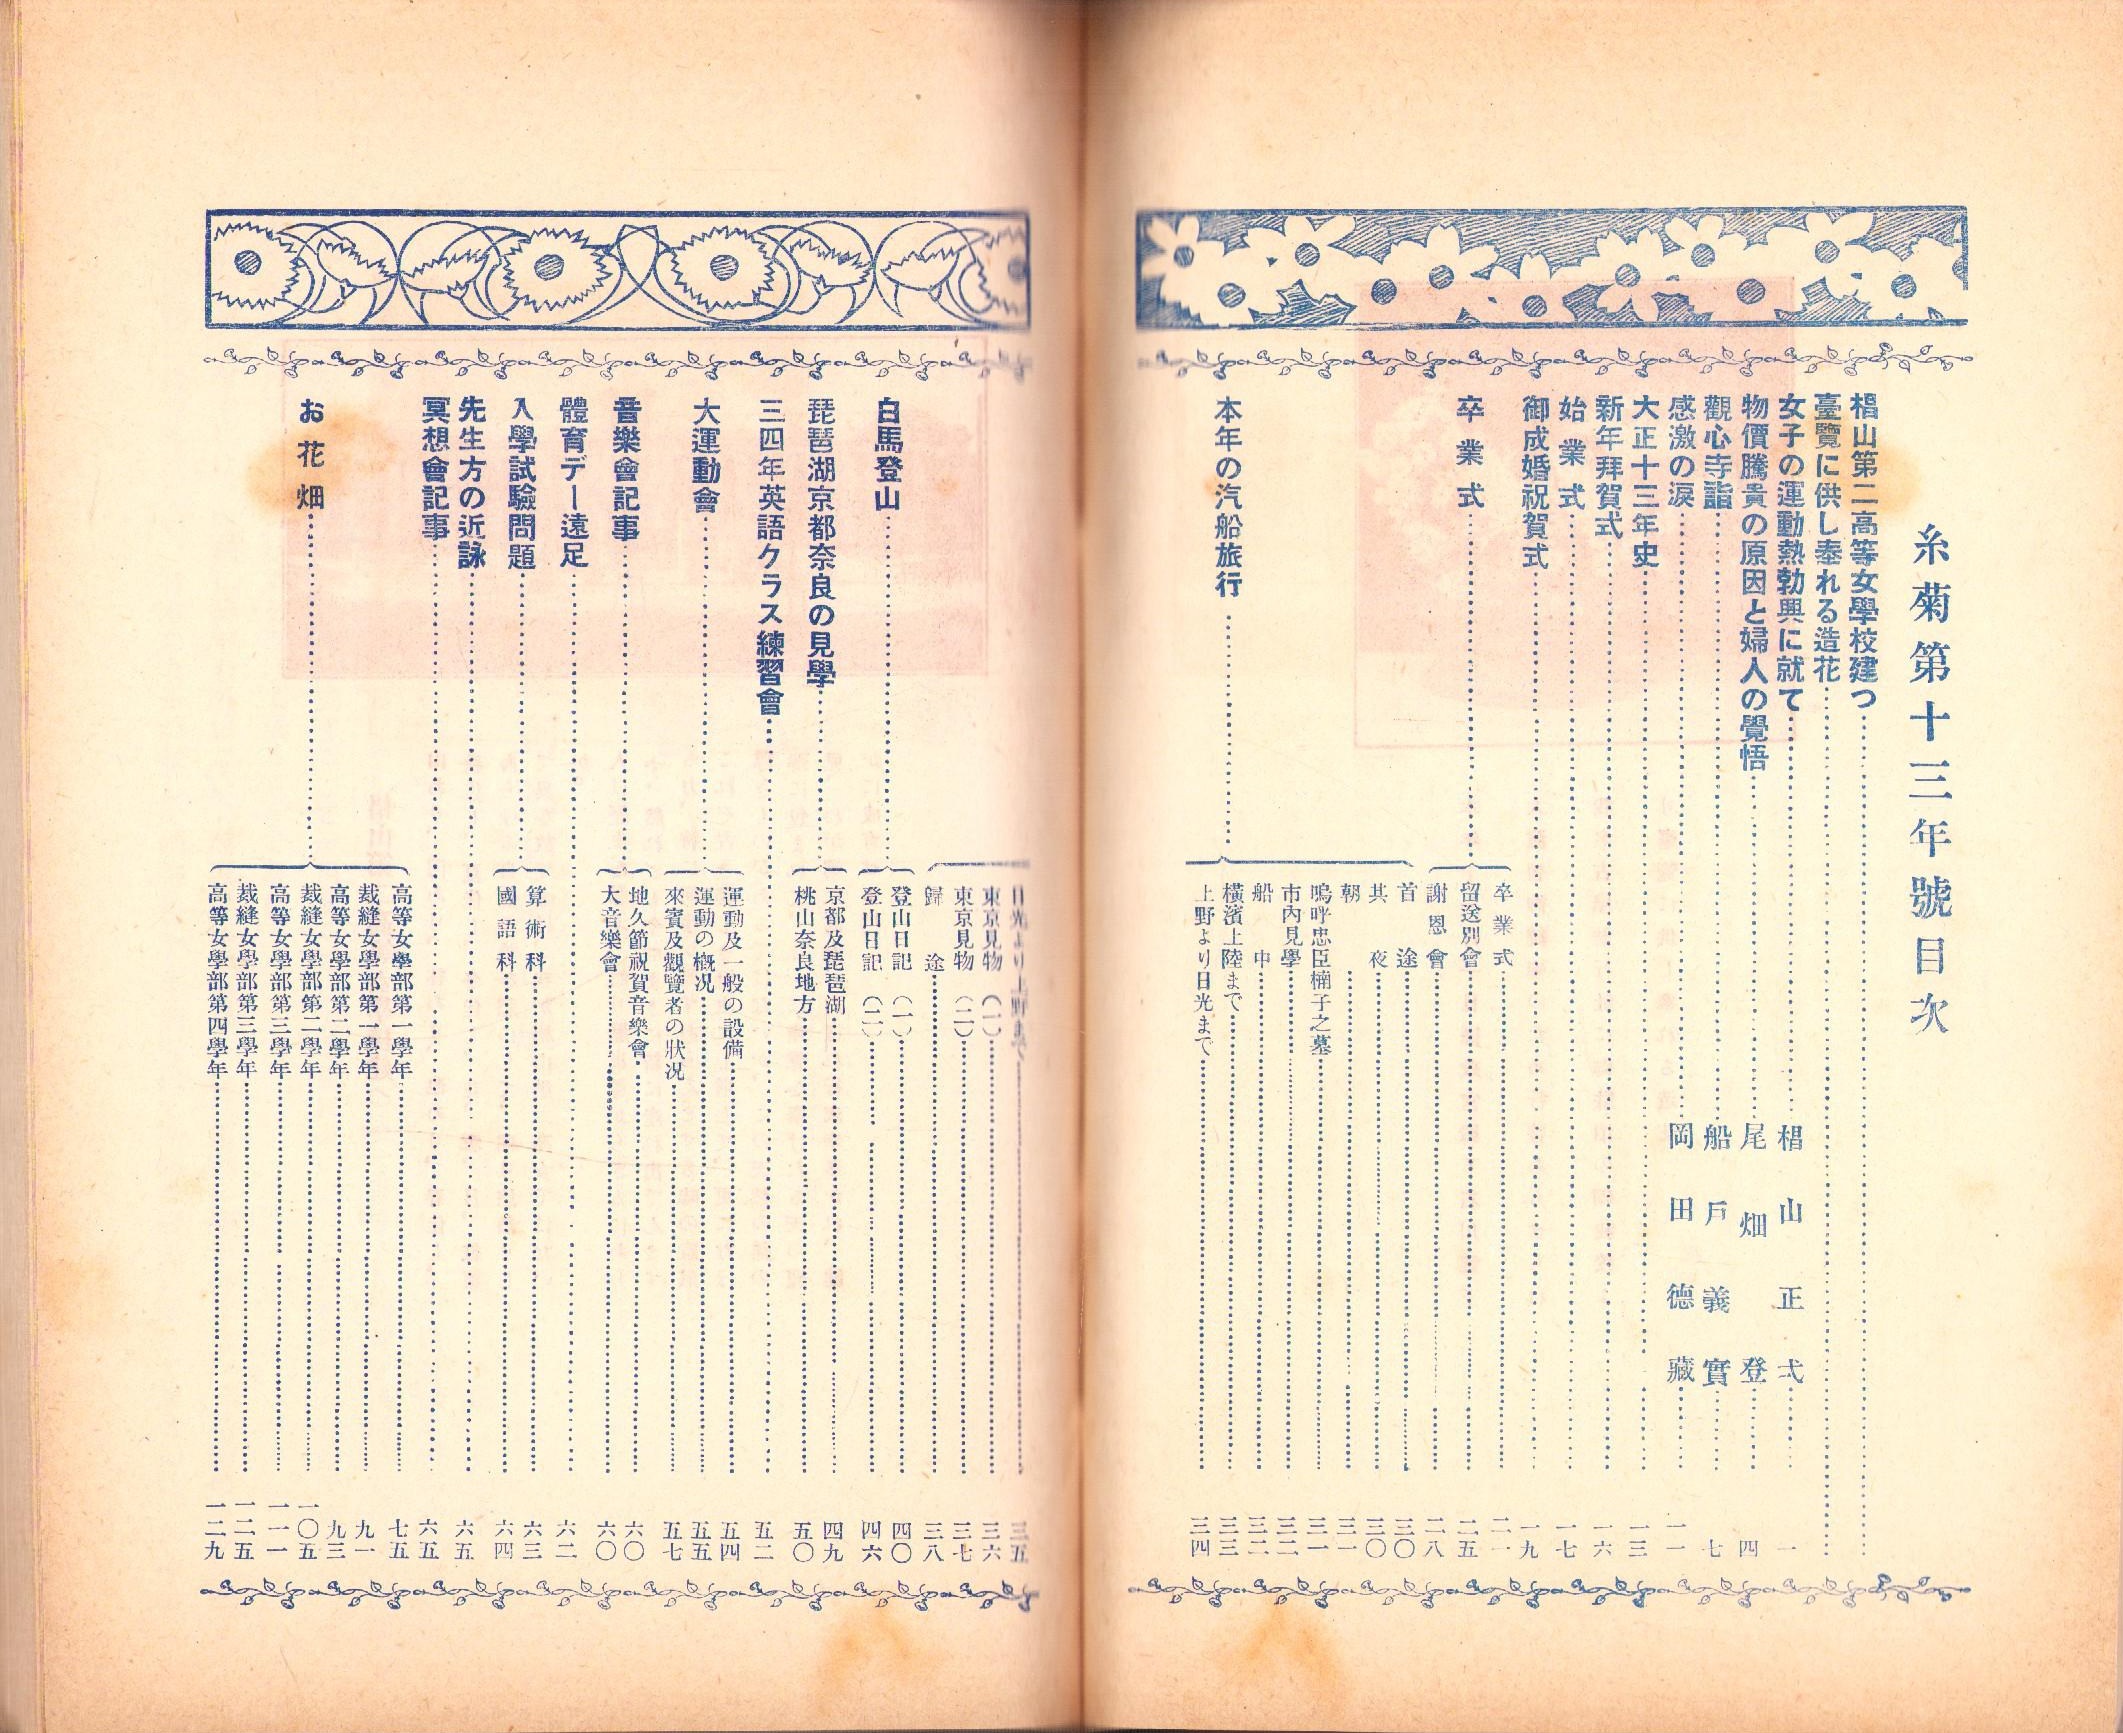 糸菊第十三年號目次
椙山第二高等女學校建つ
臺覽に供し奉れる造花
女子の運動熱勃興に就て 椙山正弌 一
物價騰貴の原因と婦人の覺悟 尾畑登 四
觀心寺詣 船戸義實 七
感激の涙 岡田德藏 一一
大正十三年史 一三
新年拜賀式 一六
始業式 一七
御成婚祝賀式 一九
卒業式
卒業式 二一
留送別會 二五
謝恩會 二八
本年の汽船旅行
首途 三〇
其夜 三〇
朝 三一
嗚呼忠臣楠子之墓 三一
市內見學 三二
船中 三二
橫濱上陸まで 三三
上野より日光まで 三四
日光より上野まで 三五
東京見物(一) 三六
東京見物(二) 三七
歸途 三八
白馬登山
登山日記(一) 四〇
登山日記(二) 四六
琵琶湖京都奈良の見學
京都及琵琶湖 四九
桃山奈良地方 五〇
三四年英語クラス練習會 五二
大運動會
運動及一般の設備 五四
運動の槪况 五五
來賓及觀覽者の狀況 五七
音樂會記事
地久節祝賀音樂會 六〇
大音樂會 六〇
體育デー遠足 六二
入學試驗問題
算術科 六三
國語科 六四
先生方の近詠 六五
冥想會記事 六五
お花畑
高等女學部第一學年 七五
裁縫女學部第一學年 九一
高等女學部第二學年 九三
裁縫女學部第二學年 一〇五
高等女學部第三學年 一一一
裁縫女學部第三學年 一二五
高等女學部第四學年 一二九